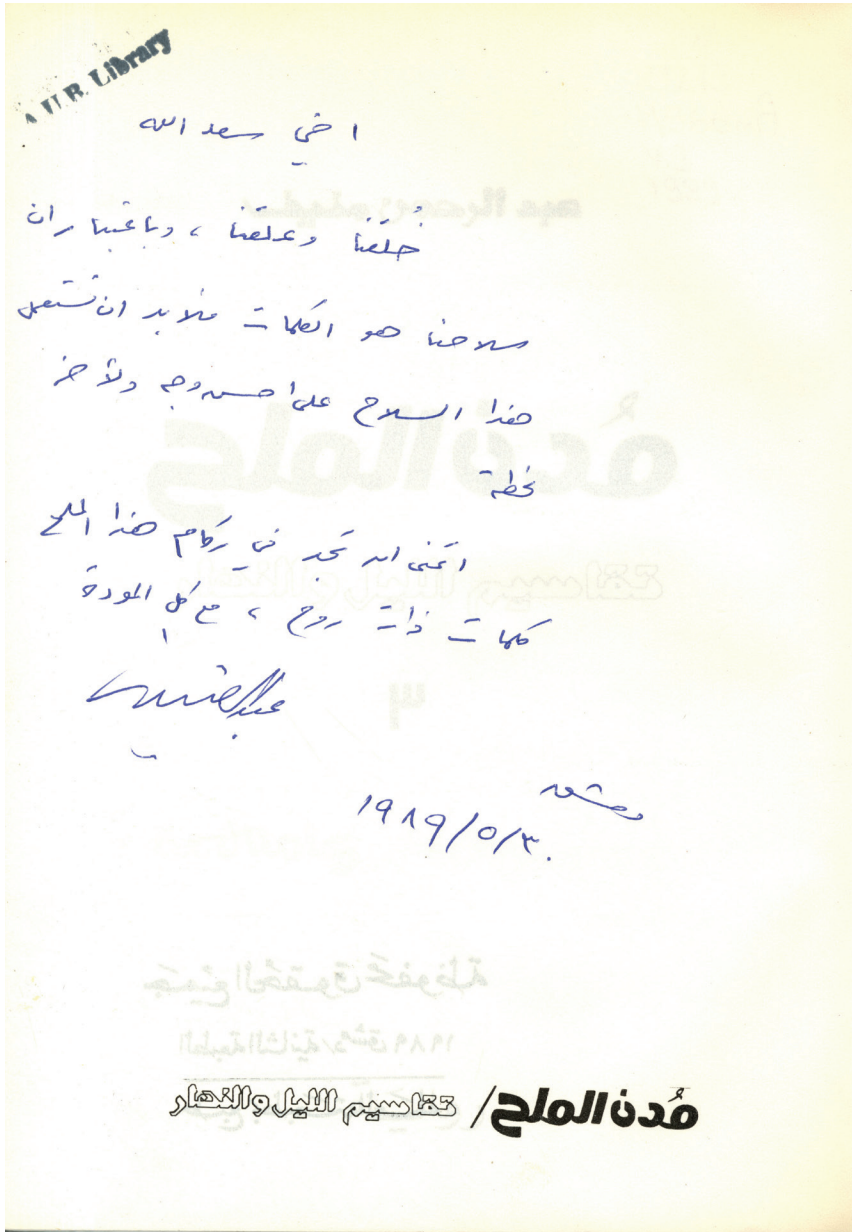 A.U.B. Library
اخي سعد الله
خُلقنا وعلقنا ، وباعتبار ان
سلاحنا هو الكلمات فلابد ان نستعمل
هذا السلاح على احسن وجه ولآخر
لحظة
اتمنى ان تجد في ركام هذا الملح
كلمات ذات روح ، مع كل المودة
دمشق
٣٠/٥/١٩٨٩
مُدن الملح / تقاسيم الليل والنهار